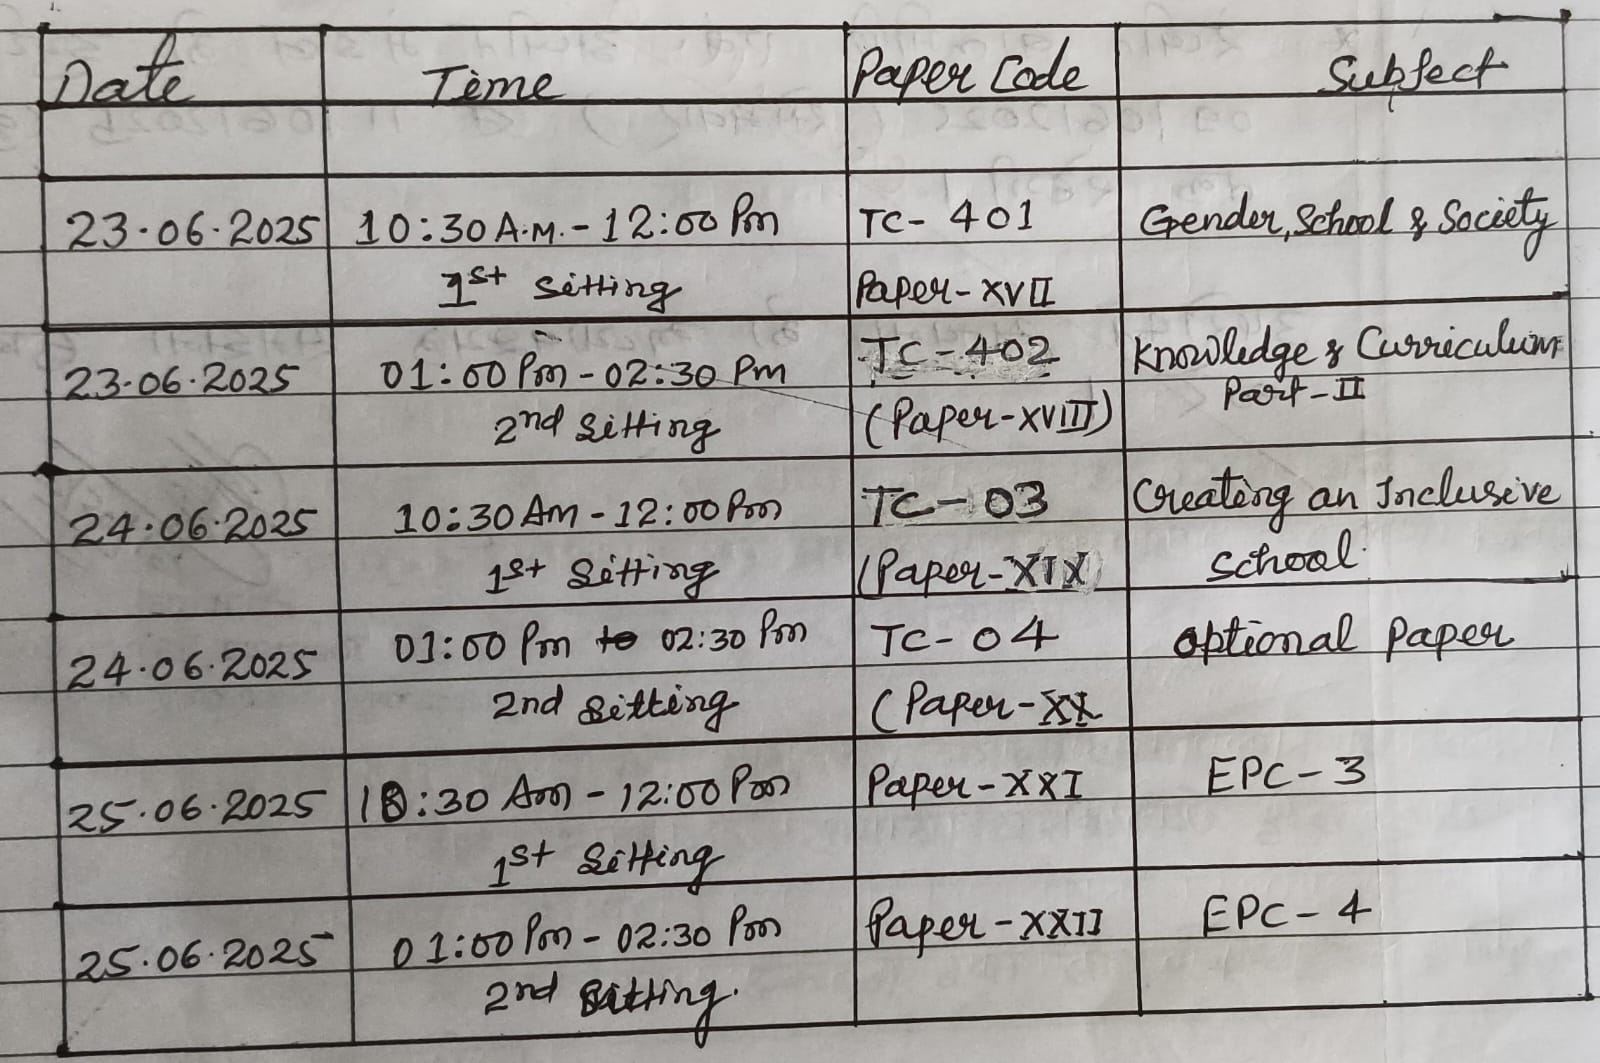 Date Time Paper Code Subject
23.06.2025 10:30 A.M. - 12:00 Pm TC- 401 Gender, School & Society
1st Sitting Paper- XVII
23.06.2025 01:00 Pm - 02:30 Pm TC - 402 Knowledge & Curriculum
Part - II
2nd Sitting (Paper-XVIII)
24.06.2025 10:30 Am - 12:00 Pm TC - 03 Creating an Inclusive
1st Sitting (Paper-XIX School.
24.06.2025 01:00 Pm to 02:30 Pm TC- 04 Optional Paper
2nd Sitting (Paper-XX
25.06.2025 10:30 Am - 12:00 Pm Paper-XXI EPC - 3
1st Sitting
25.06.2025 01:00 Pm - 02:30 Pm Paper - XXII EPC - 4
2nd Sitting.